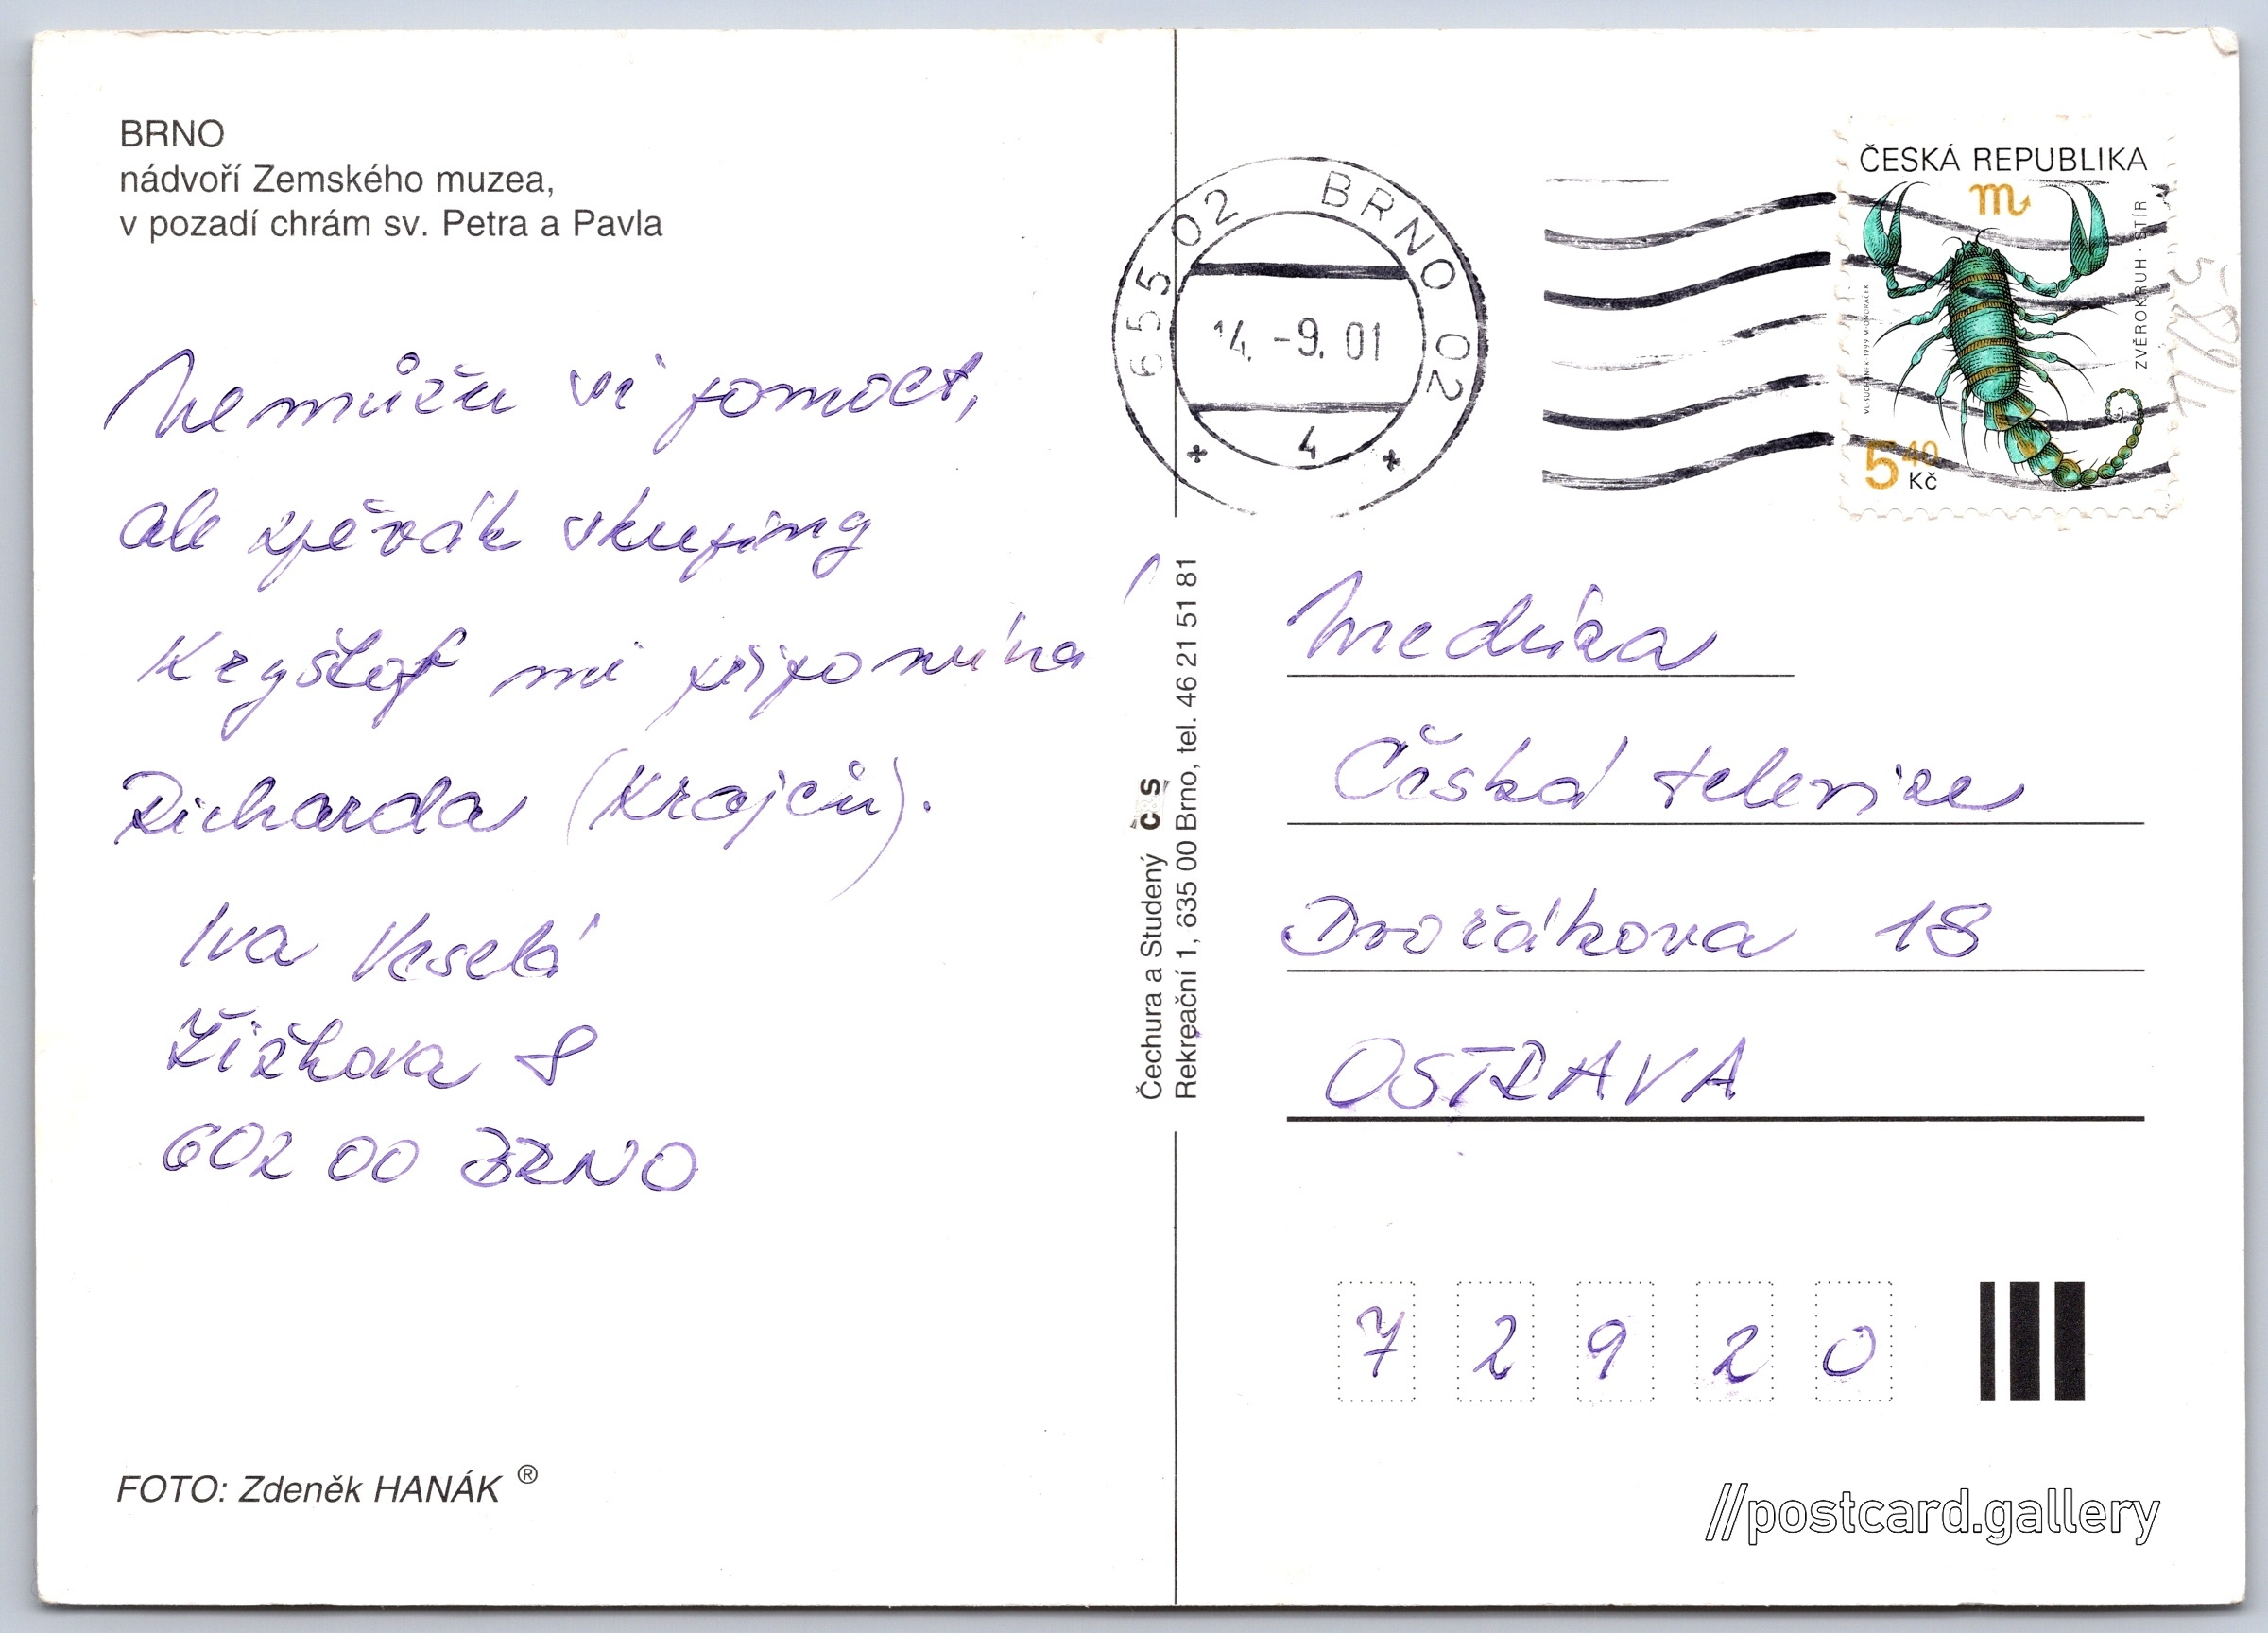 BRNO
nádvoří Zemského muzea,
v pozadí chrám sv. Petra a Pavla
Nemůžu si pomoct,
ale zpěvák skupiny
Kryštof mi připomíná
Richarda (Krajčů).
Iva Veselá
Žižkova 8
602 00 BRNO
FOTO: Zdeněk HANÁK ®
Čechura a Studený ČS
Rekreační 1, 635 00 Brno, tel. 46 21 51 81
655 02 BRNO 02
14. -9. 01
* 4 *
ČESKÁ REPUBLIKA
ZVĚROKRUH · ŠTÍR
5 40
Kč
Medúza
Česká televize
Dvořákova 18
OSTRAVA
7 2 9 2 0
//postcard.gallery